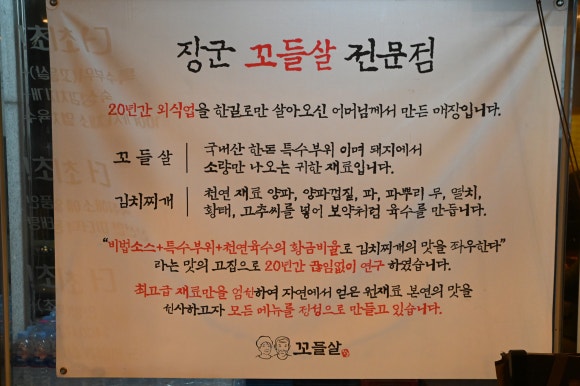 장군 꼬들살 전문점
20년간 외식업을 한길로만 살아오신 어머님께서 만든 매장입니다.
꼬들살 | 국내산 한돈 특수부위 이며 돼지에서
소량만 나오는 귀한 재료입니다.
김치찌개 | 천연 재료 양파, 양파껍질, 파, 파뿌리 무, 멸치,
황태, 고추씨를 넣어 보약처럼 육수를 만듭니다.
"비법소스+특수부위+천연육수의 황금비율로 김치찌개의 맛을 좌우한다"
라는 맛의 고집으로 20년간 끊임없이 연구 하였습니다.
최고급 재료만을 엄선하여 자연에서 얻은 원재료 본연의 맛을
선사하고자 모든 메뉴를 정성으로 만들고 있습니다.
꼬들살